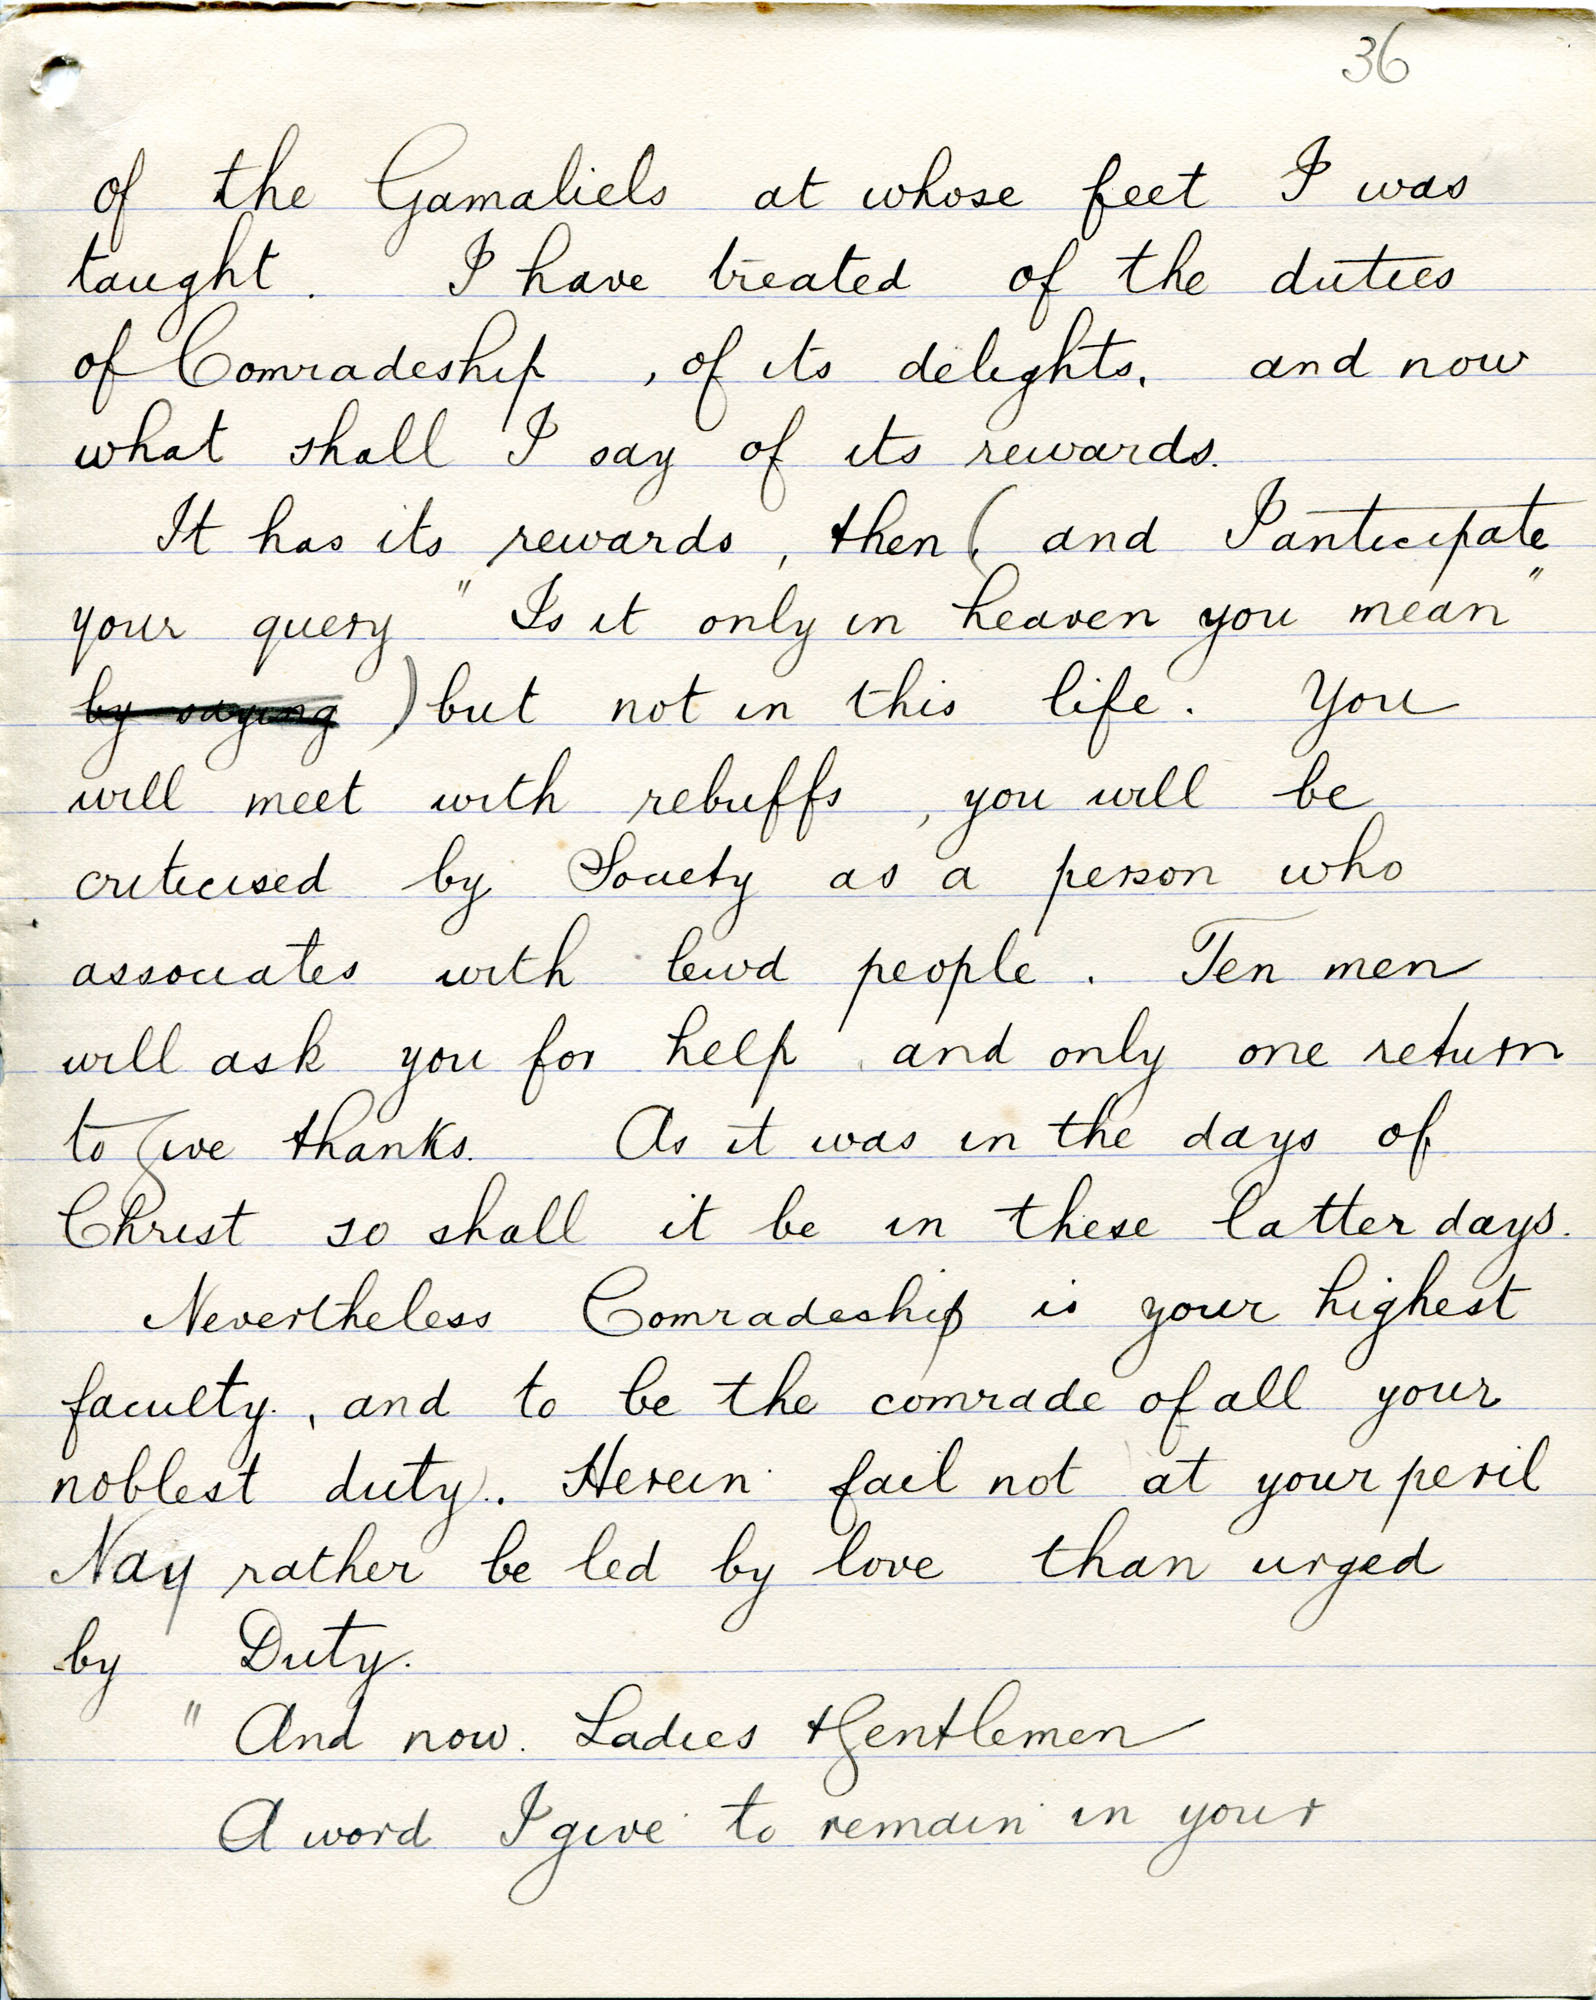 36
of the Gamaliels at whose feet I was
taught. I have treated of the duties
of Comradeship, of its delights, and now
what shall I say of its rewards.
It has its rewards, then (, and I anticipate
your query "Is it only in heaven you mean"
by saying) but not in this life. You
will meet with rebuffs, you will be
criticised by Society as a person who
associates with lewd people. Ten men
will ask you for help and only one return
to give thanks. As it was in the days of
Christ so shall it be in these latter days.
Nevertheless Comradeship is your highest
faculty, and to be the comrade of all your
noblest duty. Herein fail not at your peril
Nay rather be led by love than urged
by Duty.
"And now. Ladies & Gentlemen
A word I give to remain in your